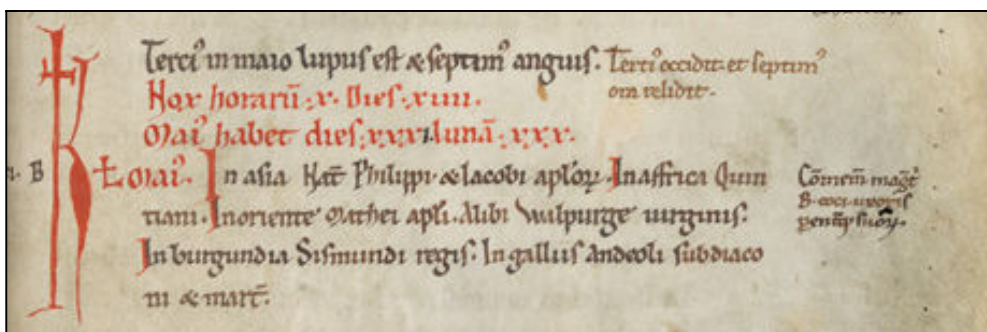 Terciꝰ in maio lupus est & septimꝰ anguis. Terciꝰ occidit et septimꝰ
ora relidit.
Nox horarū .x. Dies .xiiii.
Maiꝰ habet dies .xxxi. lunā .xxx.
B
KL Maiꝰ. In asia Nat̄ Philippi & Iacobi aplōꝝ. In affrica Quin
tiani. In oriente Mathei apli. Alibi Walpurge uirginis.
In burgundia Sismundi regis. In galliis Andeoli subdiaco
ni & mart̄.
Cōmem̄ magr̄
B. coci uxoris
suoꝝ.